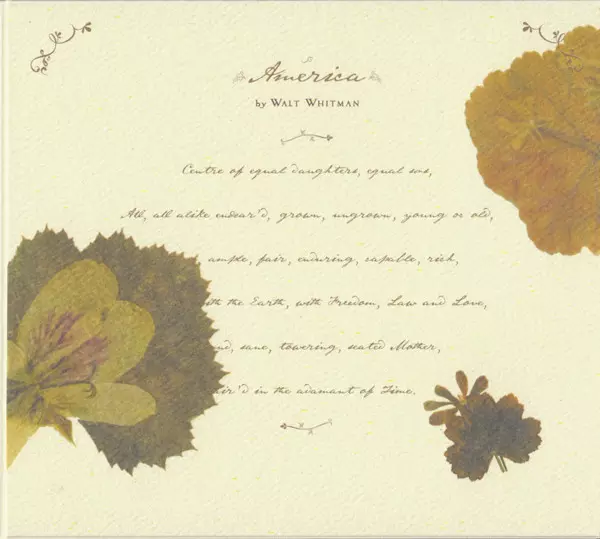 America
by WALT WHITMAN
Centre of equal daughters, equal sons,
All, all alike endear'd, grown, ungrown, young or old,
ample, fair, enduring, capable, rich,
the Earth, with Freedom, Law and Love,
sane, towering, seated Mother,
in the adamant of Time.